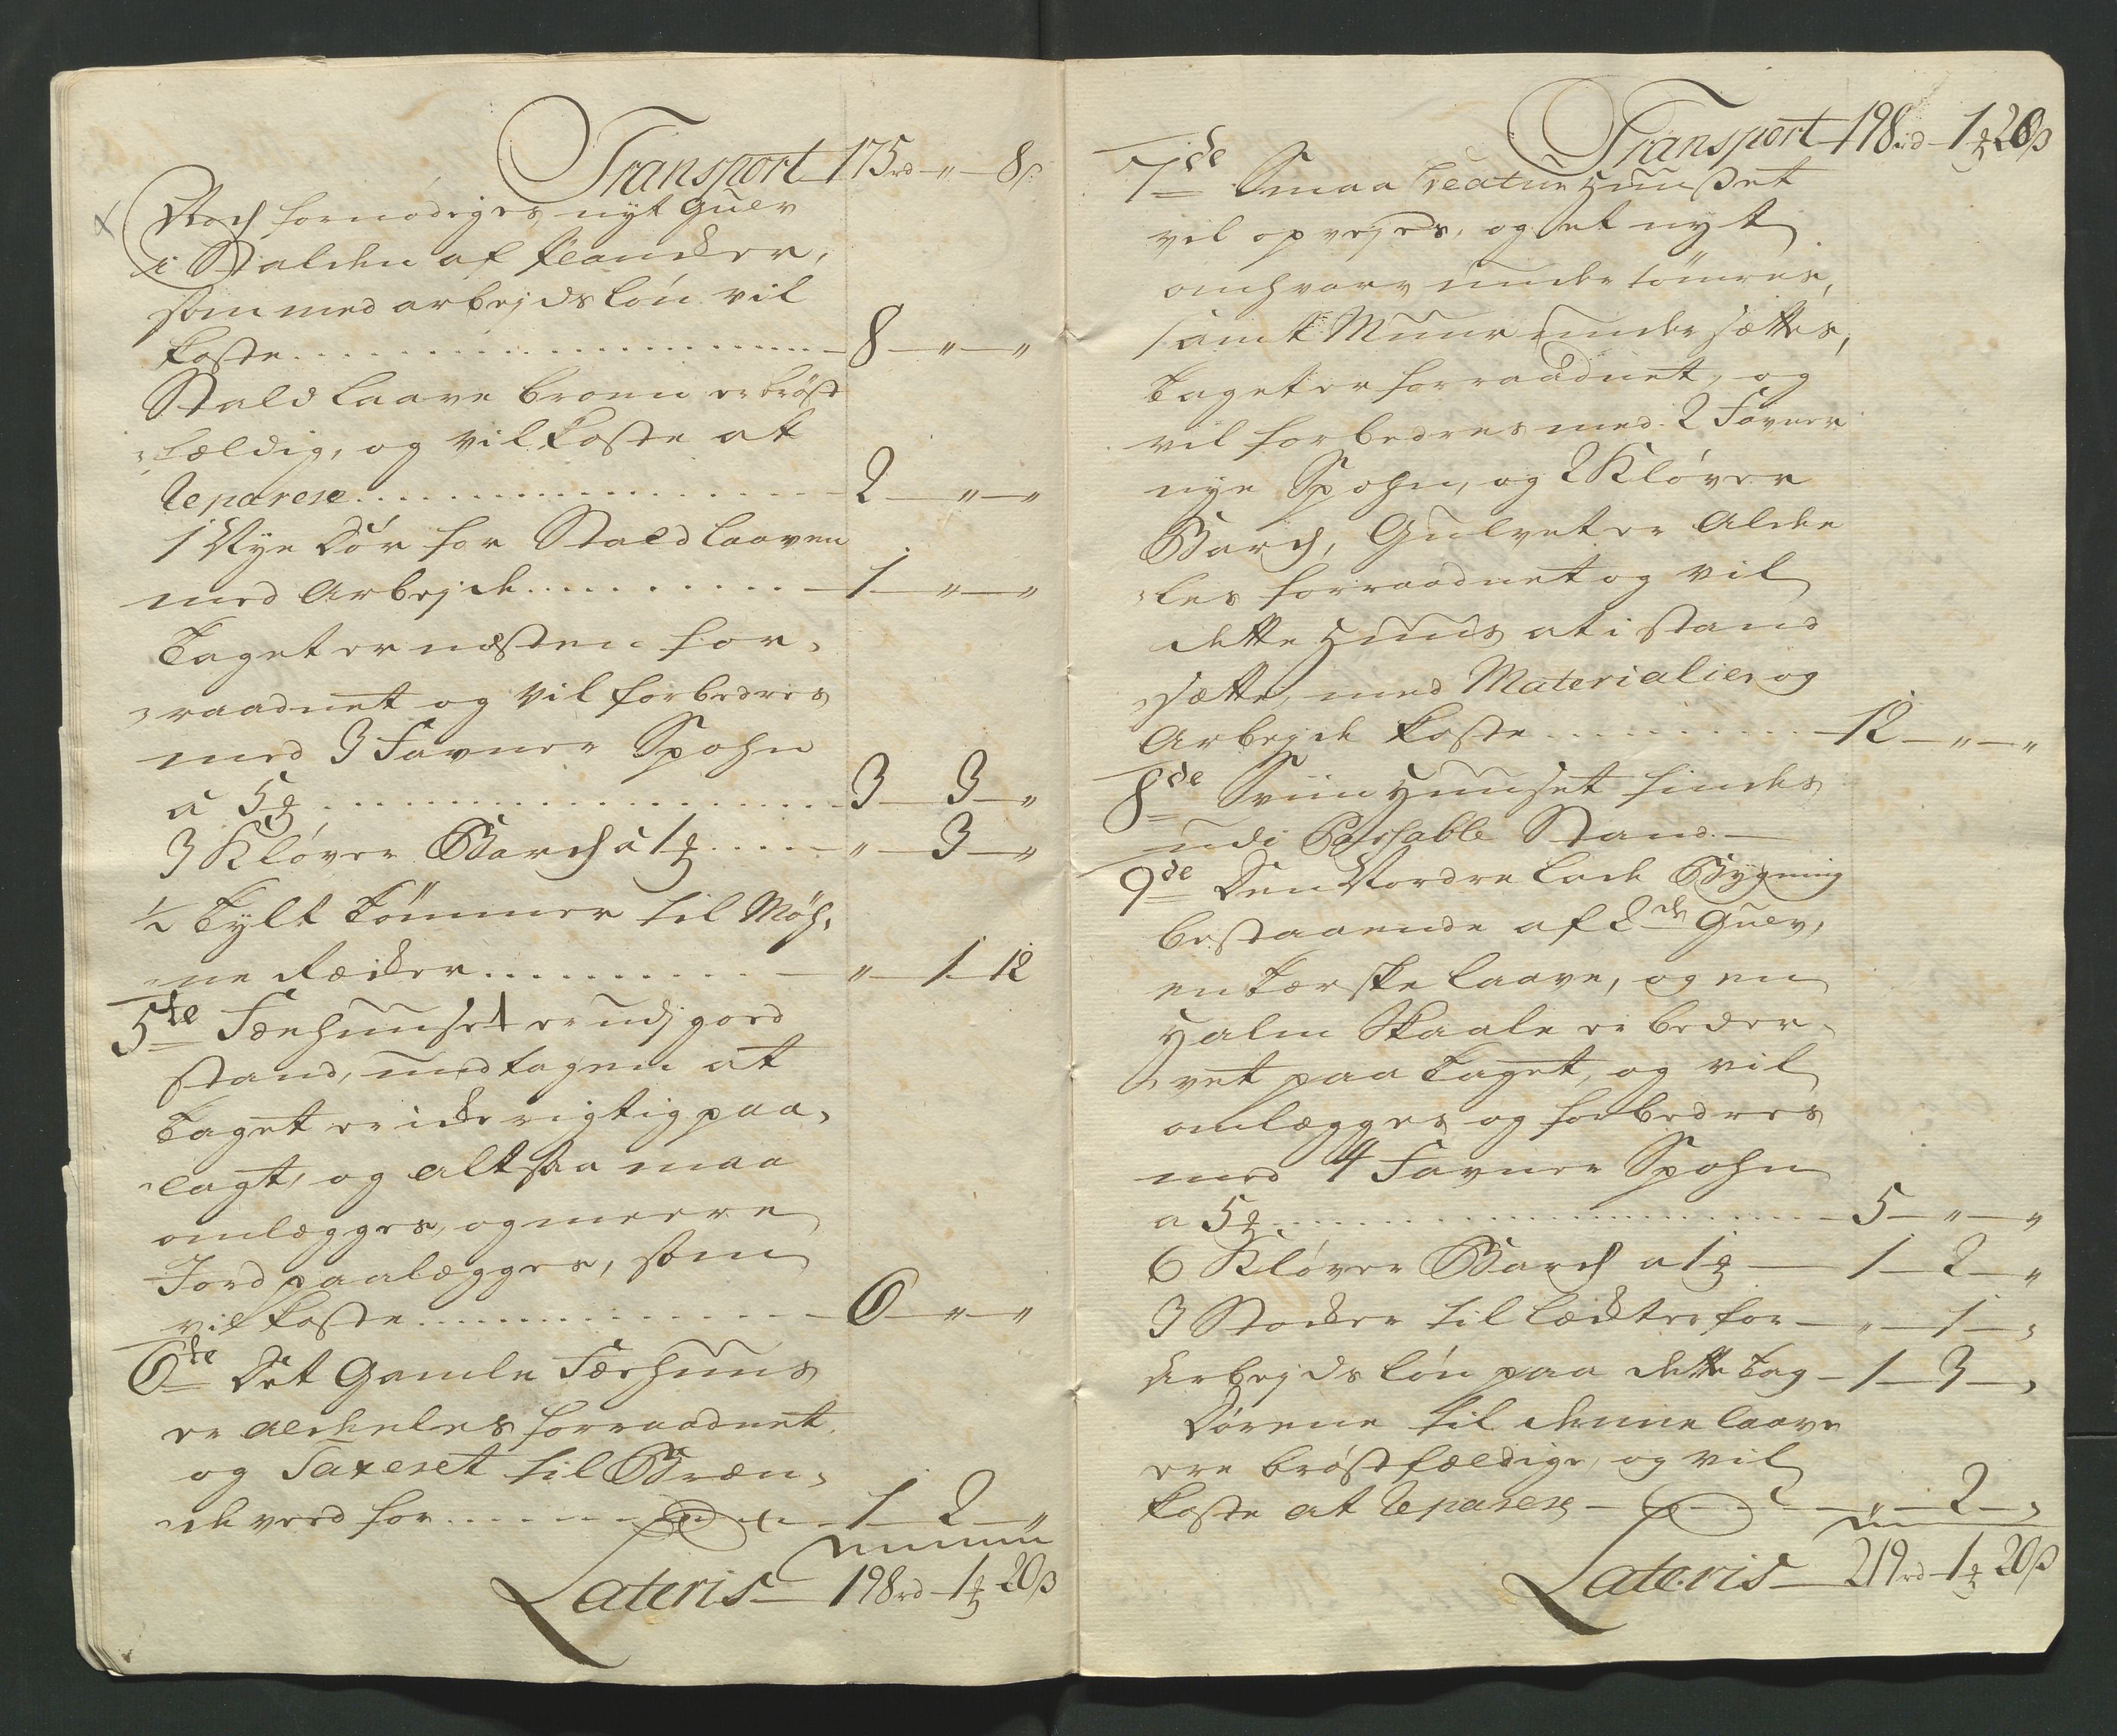 Transport 175rd - " - 8ß
Noch fornødiges nyt Gulv
i Stalden af Plancker,
som med arbejdsløn vil
koste - 8 - " - "
Stald laave broen er brøst
fældig, og vil koste at
Reparere - 2 - " - "
1 Nye Dør for Stald laaven
med Arbejde - 1 - " - "
Taget er næsten for,
raadnet og vil forbedres
med 3 Favner Spohn
a 5 ʒ - 3 - 3 - "
3 Kløver Barch a 1 ʒ - " - 3 - "
½ Tylt Tømmer til Møh,
ne Ræcker - " - 1 - 12
5te Fæehuuset er udj goed
stand, undtagen at
Taget er icke rigtig paa,
lagt, og altsaa maa
omlægges, og meere
Jord paalægges, som
vil koste - 6 - " - "
6te Det Gamle Fæehuus
er aldeles forraadnet
og Taxeret til Bræn,
deveed for - 1 - 2 - "
Lateris - 198rd - 1 ʒ 20ß
Transport 198rd - 1 ʒ 20ß
7de Smaa Creatur Huuset
vil opvejes, og et nyt
omhverv under tømres,
samt Muur under sættes,
Taget er forraadnet, og
vil forbedres med 2 Favner
nye Spohn, og 2 Kløver
Barch, Gulvet er Alde
les forraadnet og vil
dette Huus at i stand
sætte, med Materialier og
Arbejde koste - 12 - " - "
8de Sviin Huuset findes
udi Passable Stand.
9de Den Nordre Lade Bygning
bestaaende af 2de Gulv,
en Tærske laave, og en
Halm Skaale er beder,
vet paa Taget, og vil
omlægges og forbedres
med 4 Favner Spohn
a 5 ʒ - 5 - " - "
6 Kløver Barch a 1 ʒ - 1 - 2 - "
3 Stocker til lægter for - " - 1 - "
Arbejds løn paa dette Tag - 1 - 3 - "
Dørene til denne laave
ere brøstfældige, og vil
koste at Reparere - " - 2 - "
Lateris - 219rd - 1 ʒ 20ß